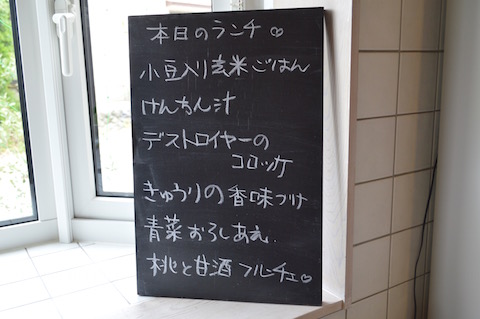 本日のランチ♡
小豆入り玄米ごはん
けんちん汁
デストロイヤーの
コロッケ
きゅうりの香味づけ
青菜おろしあえ.
桃と甘酒フルーチェ♡